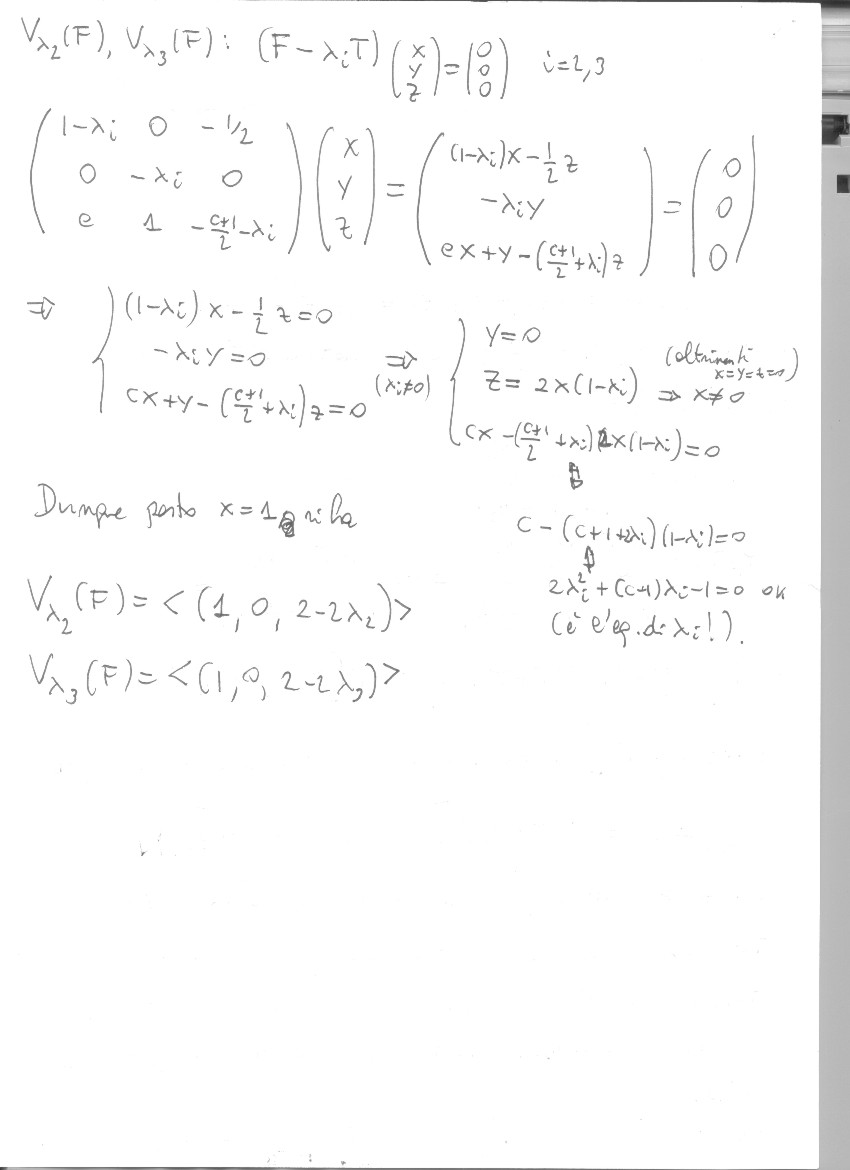 V_λ₂(F), V_λ₃(F): (F - λᵢI) (x y z) = (0 0 0) i=2,3
(1-λᵢ 0 -1/2; 0 -λᵢ 0; c 1 -(c+1)/2 -λᵢ) (x y z) = ((1-λᵢ)x - 1/2 z; -λᵢy; cx+y-((c+1)/2+λᵢ)z) = (0 0 0)
⇒ { (1-λᵢ)x - 1/2 z = 0
-λᵢy = 0
cx+y-((c+1)/2+λᵢ)z = 0
⇒ (λᵢ≠0)
{ y = 0
z = 2x(1-λᵢ) ⇒ x≠0 (altrimenti x=y=z=0)
cx-((c+1)/2+λᵢ)2x(1-λᵢ)=0
⇕
c-(c+1+2λᵢ)(1-λᵢ)=0
⇕
2λᵢ²+(c-1)λᵢ-1=0 ok
(è l'eq. di λᵢ!).
Dunque posto x=1, si ha
V_λ₂(F) = <(1, 0, 2-2λ₂)>
V_λ₃(F) = <(1, 0, 2-2λ₃)>